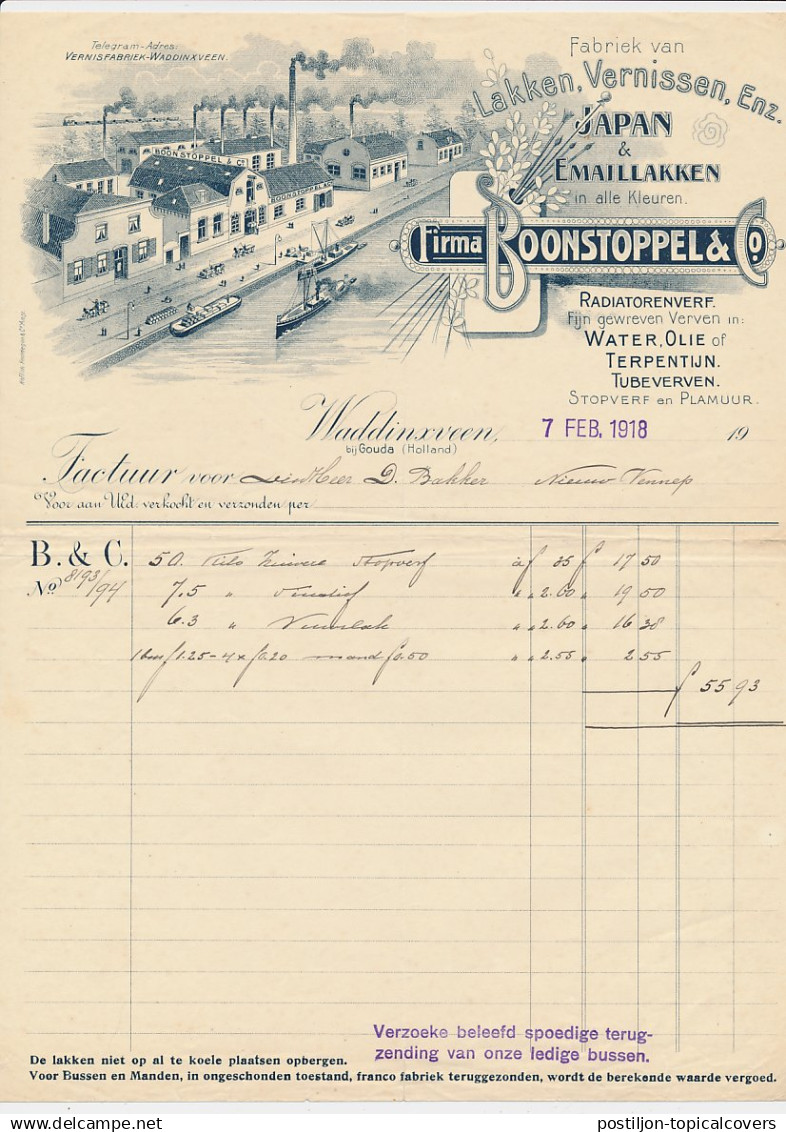 Telegram-Adres:
VERNISFABRIEK-WADDINXVEEN.
Fabriek van
Lakken, Vernissen, Enz.
JAPAN
&
EMAILLAKKEN
in alle Kleuren.
BOONSTOPPEL & Co
BOONSTOPPEL & Co
Firma BOONSTOPPEL & Co.
RADIATORENVERF.
Fijn gewreven Verven in:
WATER, OLIE of
TERPENTIJN.
TUBEVERVEN.
STOPVERF en PLAMUUR.
Waddinxveen, 7 FEB. 1918 19
bij Gouda (Holland)
Factuur voor Heer D. Bakker Nieuw Vennep
Voor aan UEd: verkocht en verzonden per
B. & C. 50 Kilo Zuivere Stopverf à f 35 f 17 50
No 8193/94 7.5 " " " 2.60 " 19 50
6.3 " " " 2.60 " 16 38
1 bus f 1.25 - 4 x f 0.20 mand f 0.50 " " 2.55 " 2 55
f 55 93
Verzoeke beleefd spoedige terug-
zending van onze ledige bussen.
De lakken niet op al te koele plaatsen opbergen.
Voor Bussen en Manden, in ongeschonden toestand, franco fabriek teruggezonden, wordt de berekende waarde vergoed.
postiljon-topicalcovers